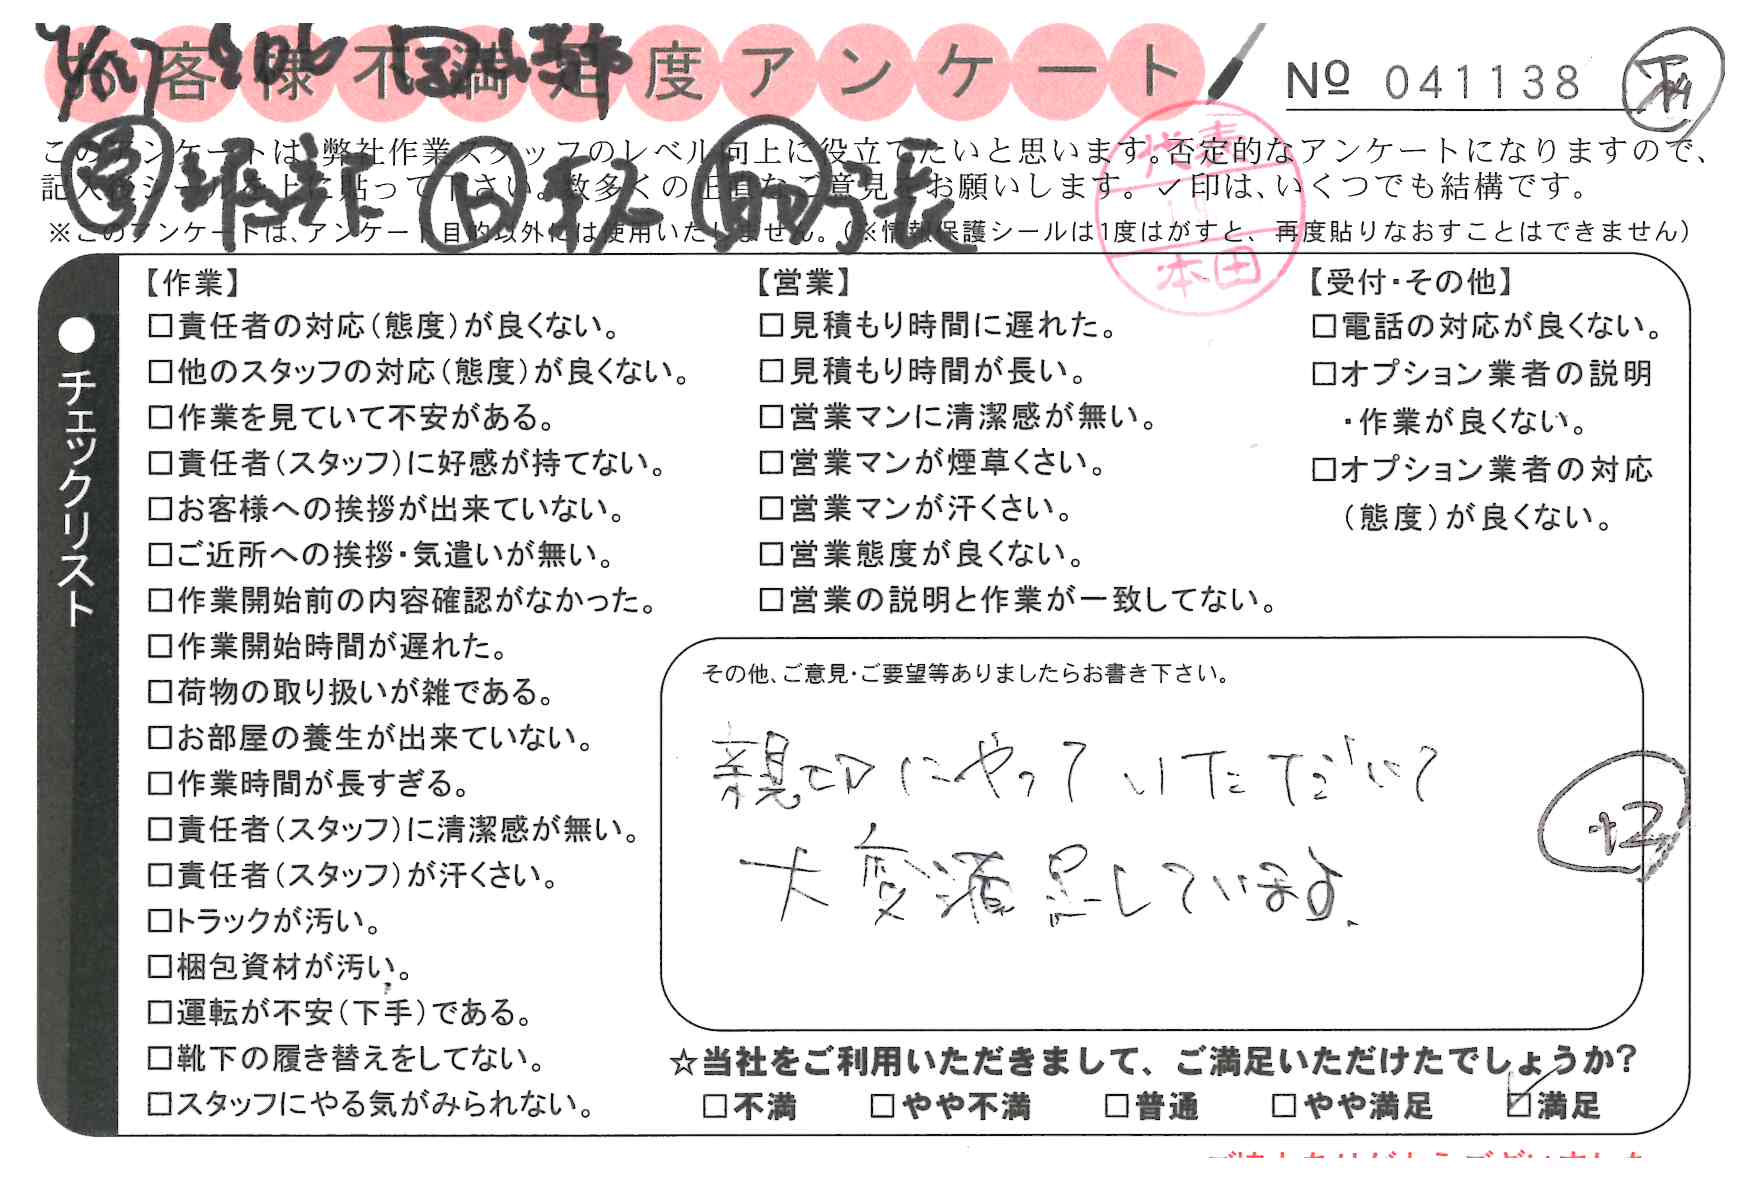 お客様不満足度アンケート
№ 041138
このアンケートは、弊社作業スタッフのレベル向上に役立てたいと思います。否定的なアンケートになりますので、
記入後シールを上に貼って下さい。数多くの正直なご意見をお願いします。✓印は、いくつでも結構です。
※このアンケートは、アンケート目的以外には使用いたしません。(※情報保護シールは1度はがすと、再度貼りなおすことはできません)
代表
本田
●チェックリスト
【作業】
□責任者の対応(態度)が良くない。
□他のスタッフの対応(態度)が良くない。
□作業を見ていて不安がある。
□責任者(スタッフ)に好感が持てない。
□お客様への挨拶が出来ていない。
□ご近所への挨拶・気遣いが無い。
□作業開始前の内容確認がなかった。
□作業開始時間が遅れた。
□荷物の取り扱いが雑である。
□お部屋の養生が出来ていない。
□作業時間が長すぎる。
□責任者(スタッフ)に清潔感が無い。
□責任者(スタッフ)が汗くさい。
□トラックが汚い。
□梱包資材が汚い。
□運転が不安(下手)である。
□靴下の履き替えをしてない。
□スタッフにやる気がみられない。
【営業】
□見積もり時間に遅れた。
□見積もり時間が長い。
□営業マンに清潔感が無い。
□営業マンが煙草くさい。
□営業マンが汗くさい。
□営業態度が良くない。
□営業の説明と作業が一致してない。
【受付・その他】
□電話の対応が良くない。
□オプション業者の説明
・作業が良くない。
□オプション業者の対応
(態度)が良くない。
その他、ご意見・ご要望等ありましたらお書き下さい。
親切にやっていただいて
大変満足しています。
+2
☆当社をご利用いただきまして、ご満足いただけたでしょうか?
□不満 □やや不満 □普通 □やや満足 ☑満足